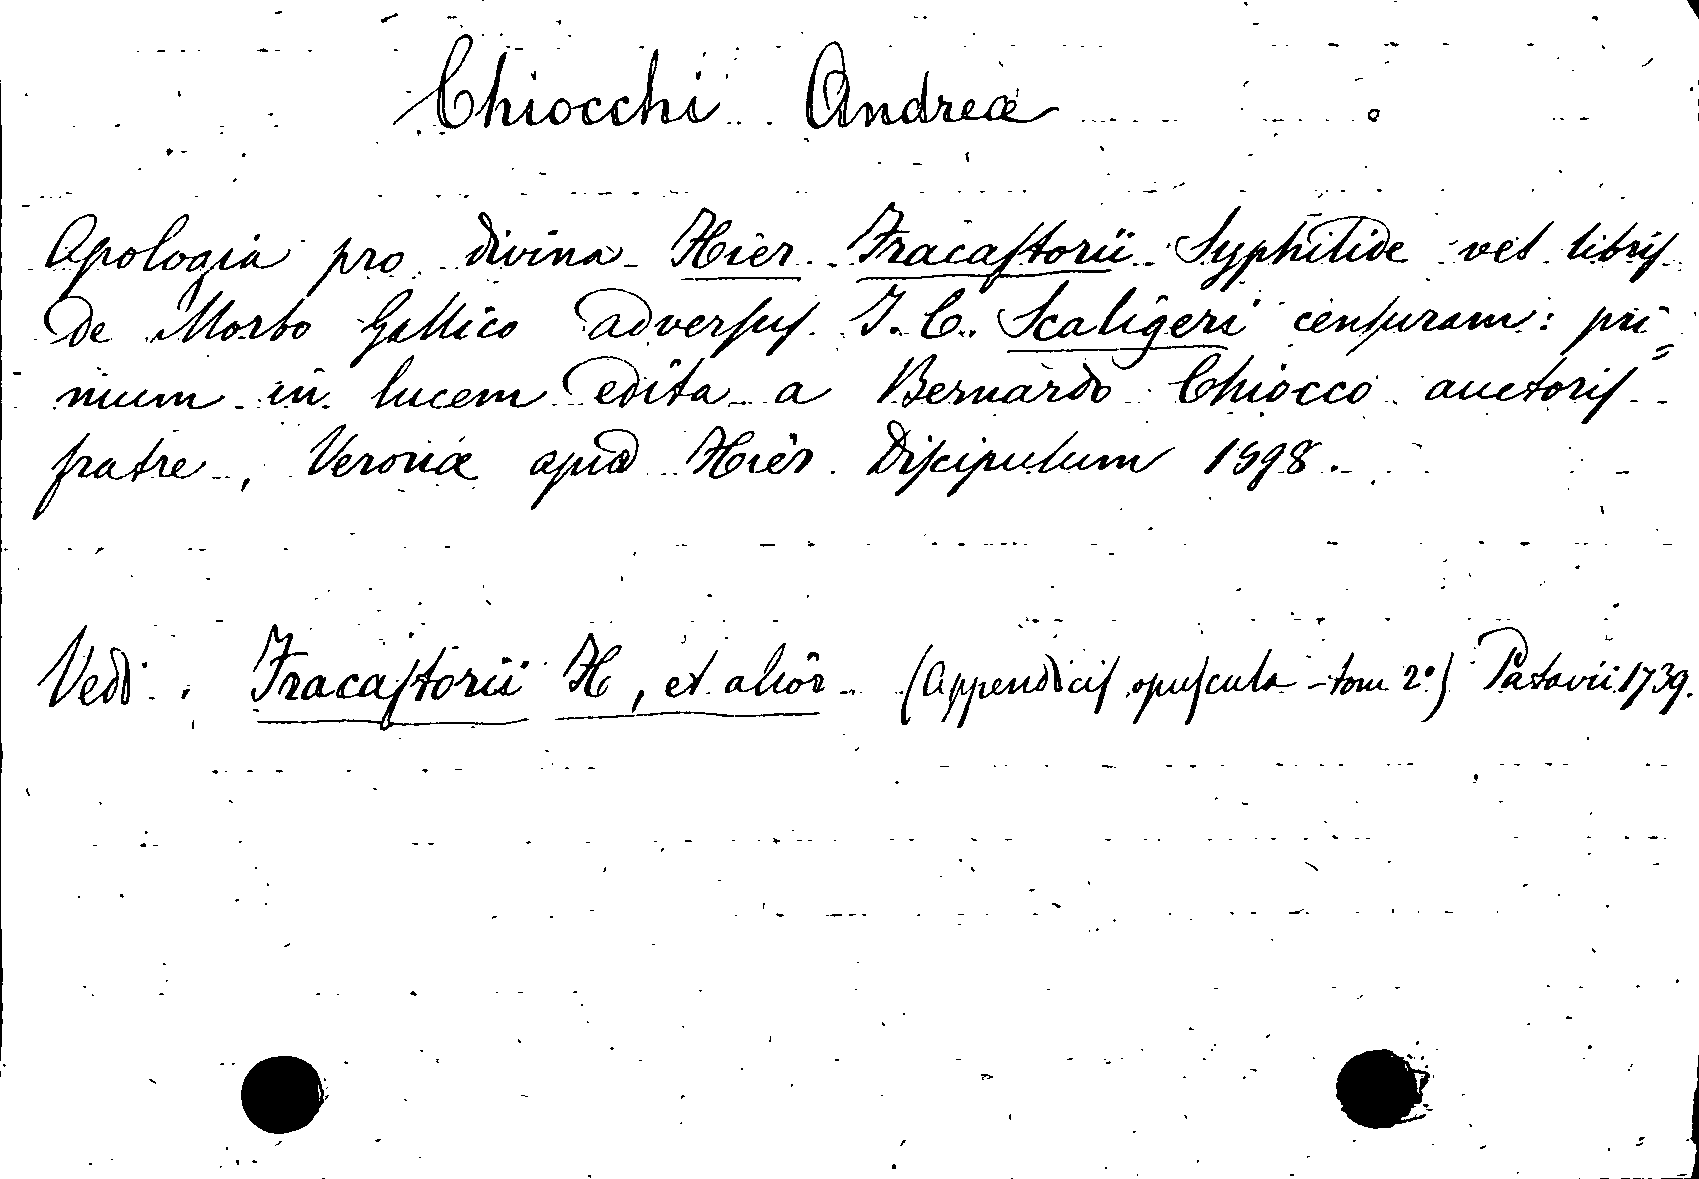 Chiocchi Andreæ
Apologia pro divina Hier. Fracaſtorii Syphilide vel libriſ
de Morbo Gallico adverſuſ J. C. Scaligeri cenſuram: pri=
mum in lucem edita a Bernardo Chiocco auctoriſ
fratre, Veronæ apud Hier. Diſcipulum 1598.
Vedi: Fracaſtorii H, et aliôr (Appendiciſ opuſcula - tom 2º) Patavii 1739.